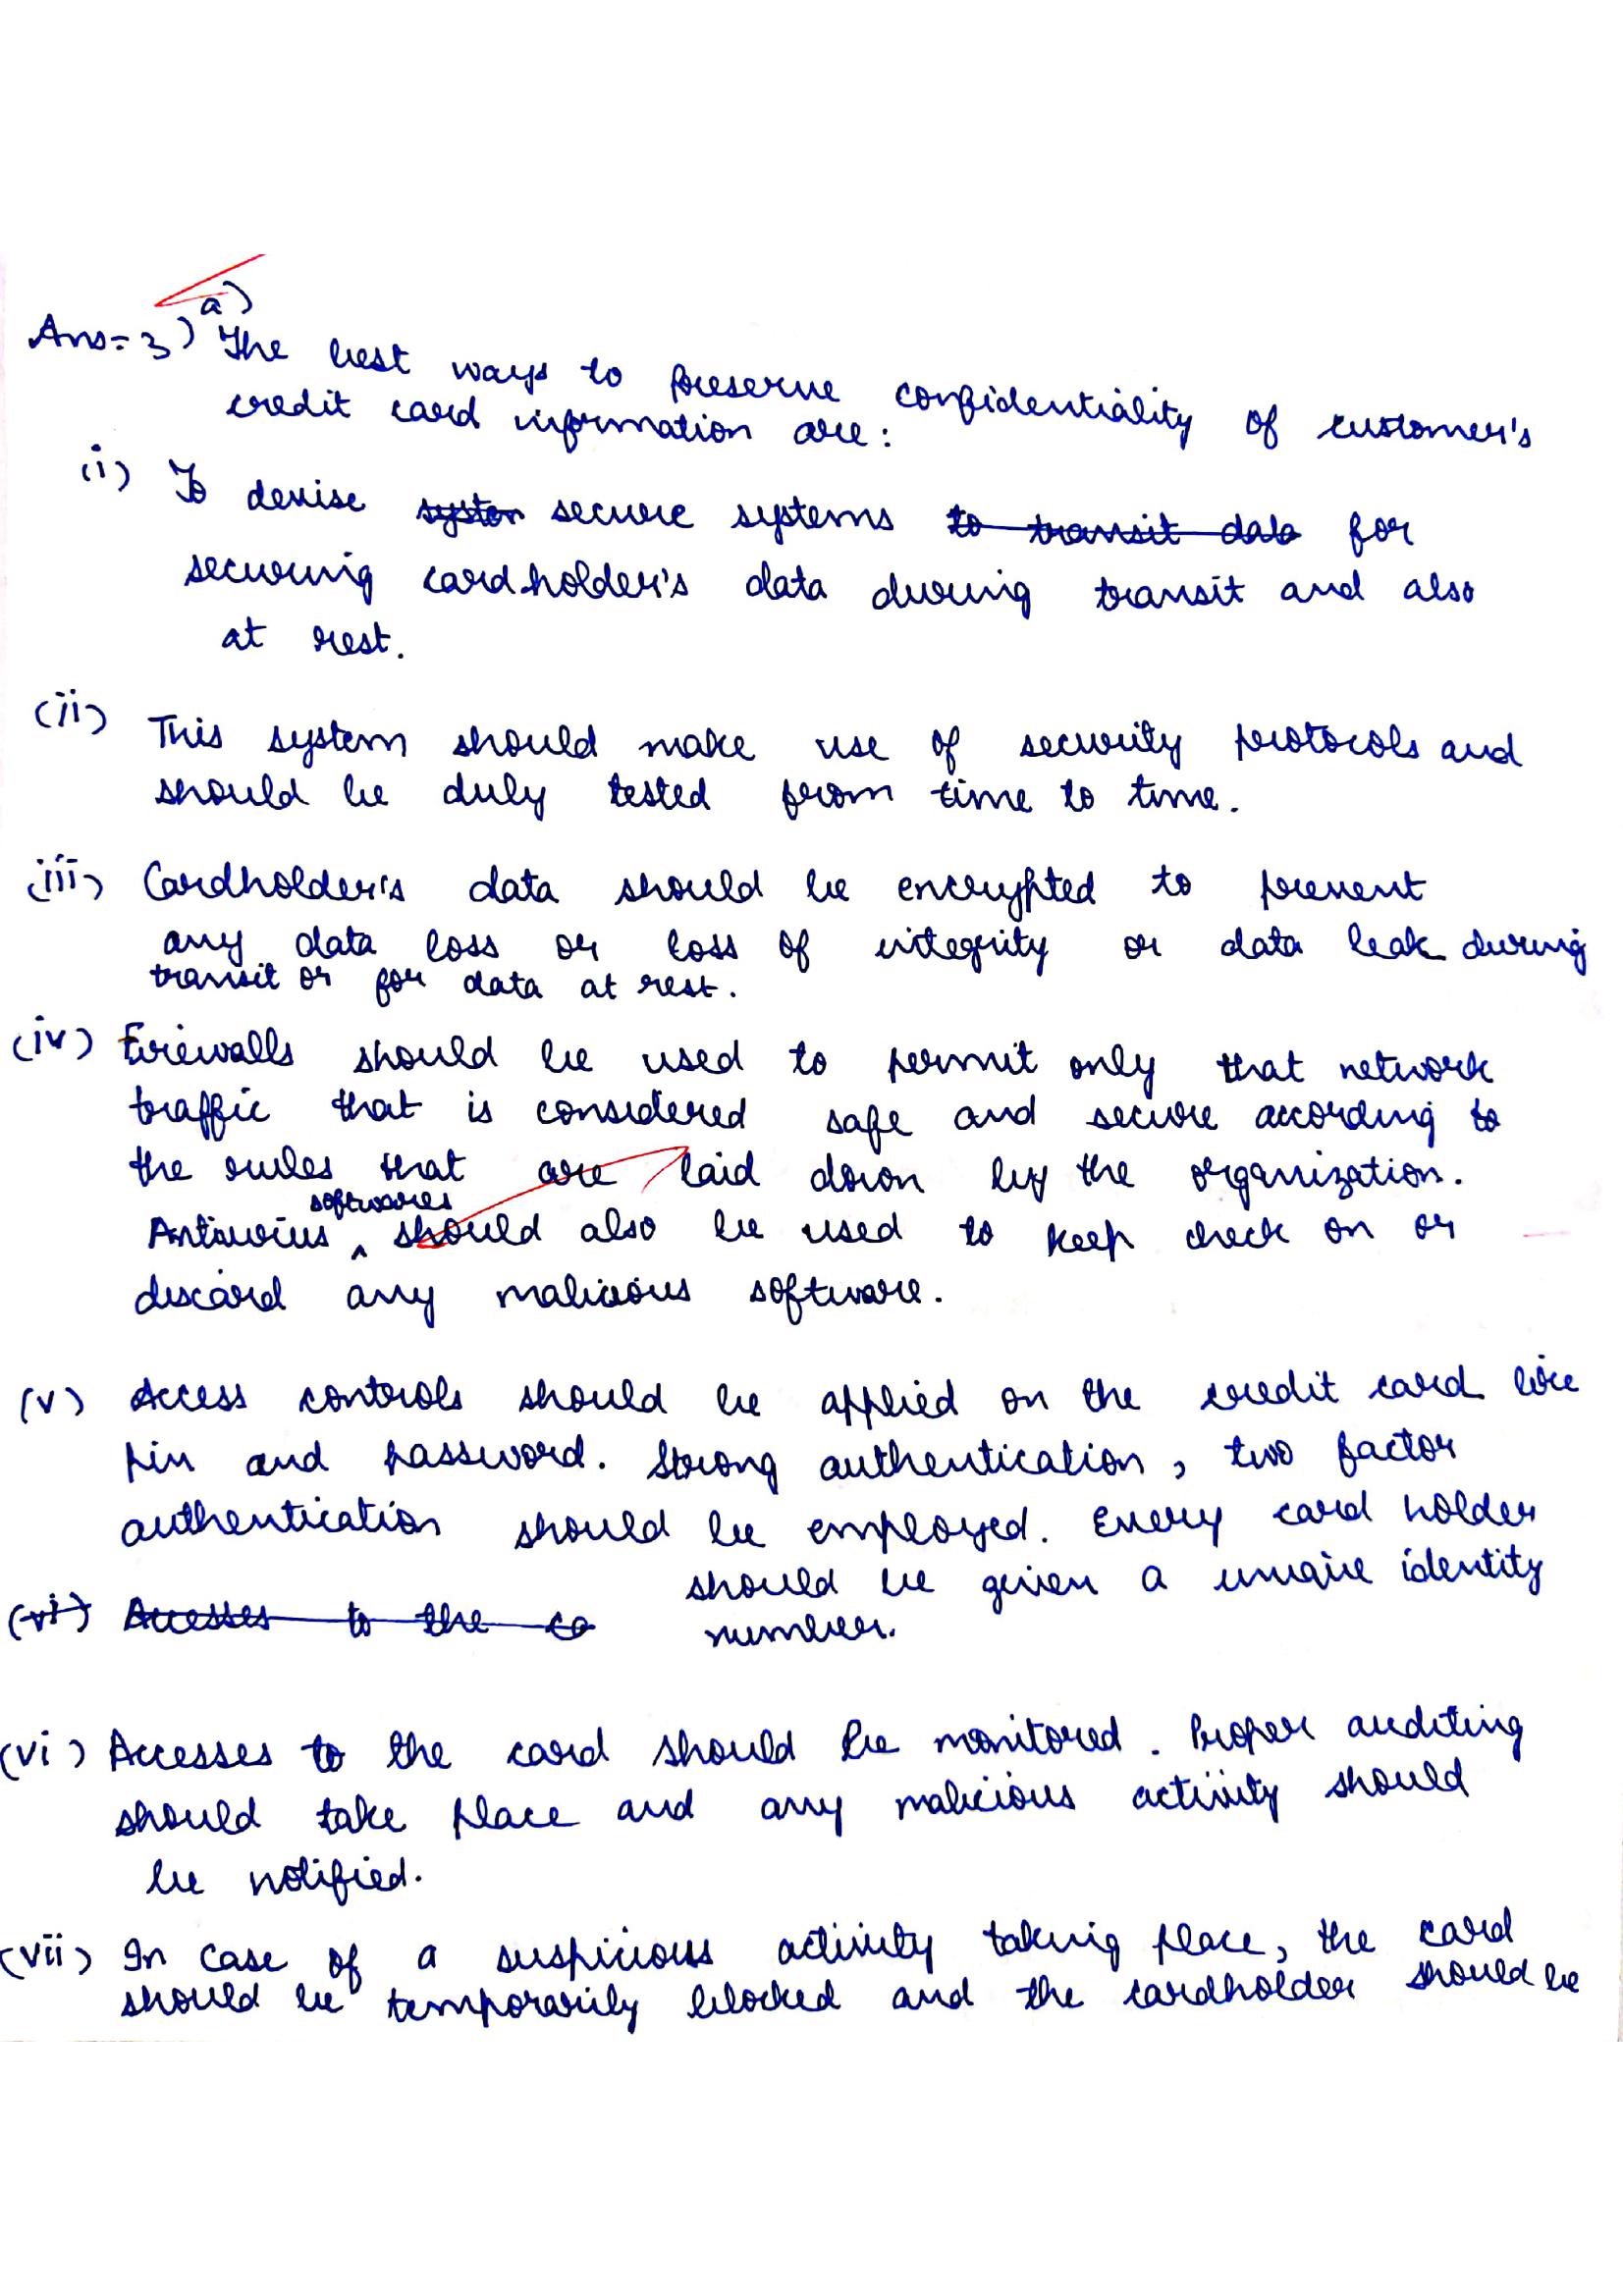 a)
Ans= 3) The best ways to preserve confidentiality of customer's
credit card information are:
(i) To devise ~~syster~~ secure systems ~~to transit data~~ for
securing cardholder's data during transit and also
at rest.
(ii) This system should make use of security protocols and
should be duly tested from time to time.
(iii) Cardholder's data should be encrypted to prevent
any data loss or loss of integrity or data leak during
transit or for data at rest.
(iv) Firewalls should be used to permit only that network
traffic that is considered safe and secure according to
the rules that are laid down by the organization.
softwares
Antivirus ^ should also be used to keep check on or
discard any malicious software.
(v) Access controls should be applied on the credit card like
pin and password. Strong authentication, two factor
authentication should be employed. Every card holder
should be given a unique identity
~~(vi) Accesses to the ca~~ number.
(vi) Accesses to the card should be monitored. Proper auditing
should take place and any malicious activity should
be notified.
(vii) In case of a suspicious activity taking place, the card
should be temporarily blocked and the cardholder should be